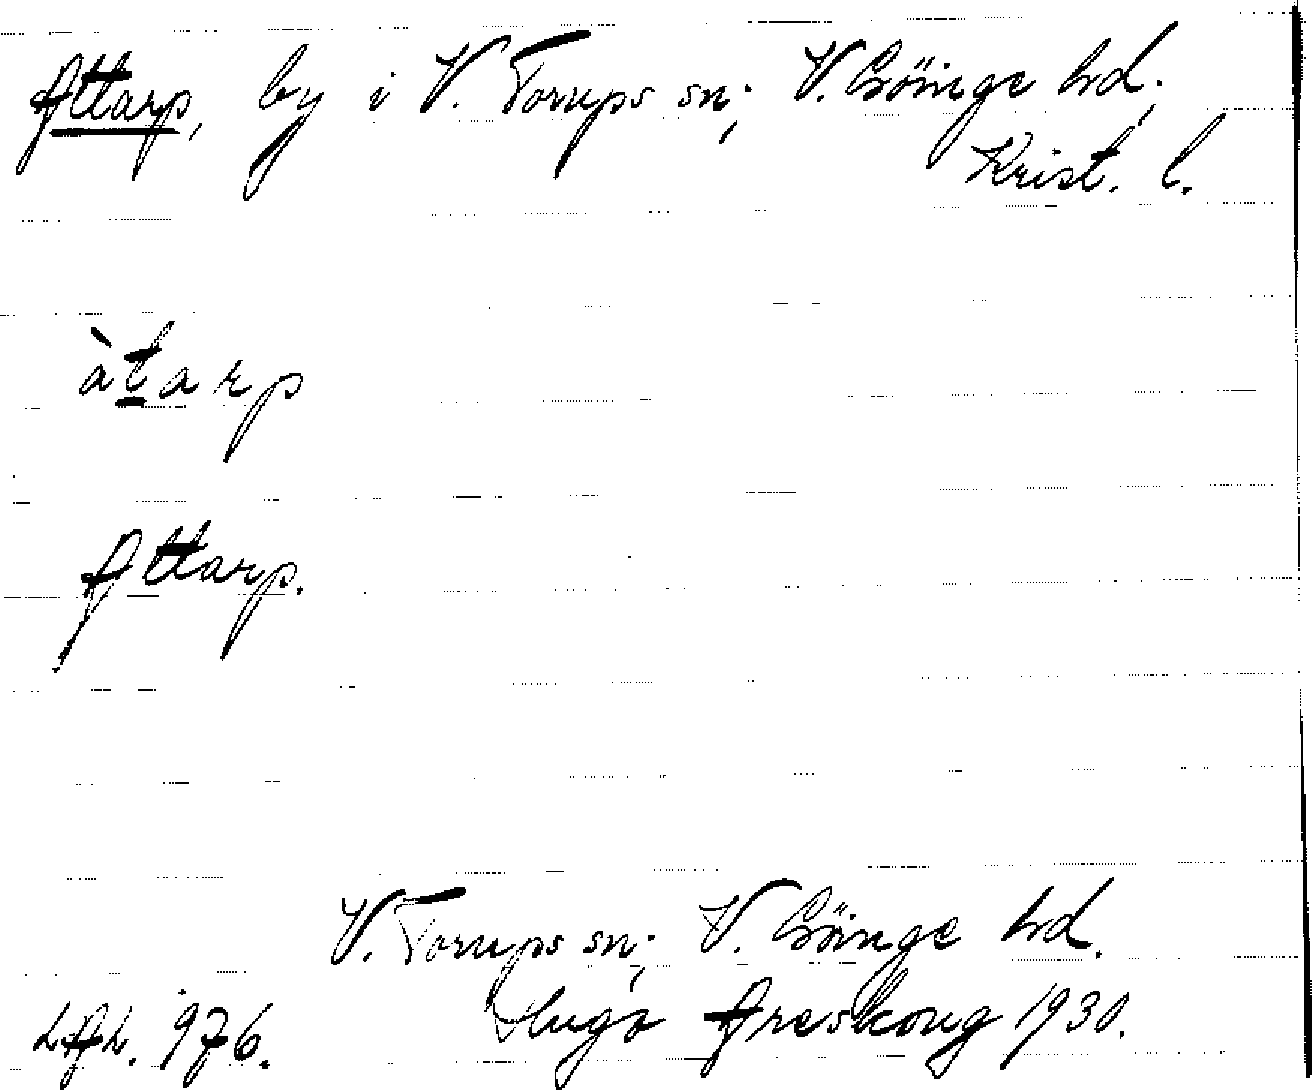 Attarp, by i V. Torups sn; V. Göinge hd;
Krist. l.
àtarp
Attarp.
V. Torups sn; V. Göinge hd.
LAL. 976. Hugo Areskoug 1930.